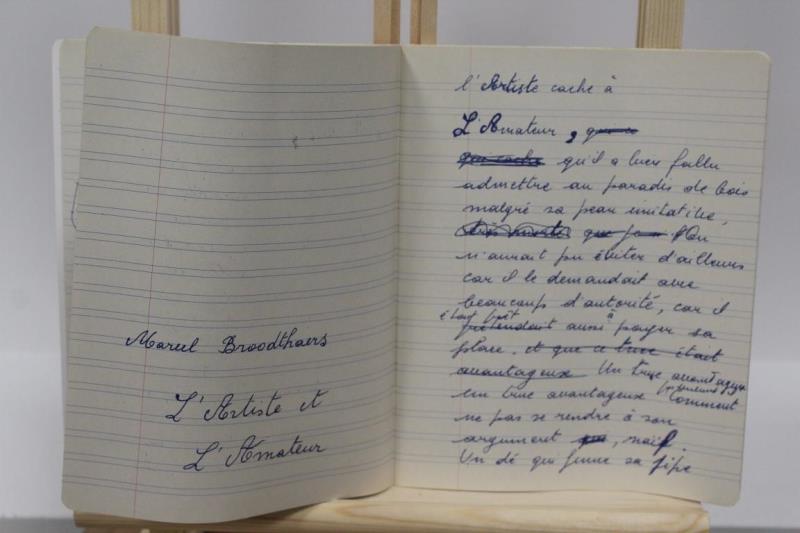 Marcel Broodthaers
L'Artiste et
L'Amateur
l'Artiste cache à
L'Amateur,
qu'il a bien fallu
admettre au paradis de bois
malgré sa peau imitative,
On
n'aurait pu éviter d'ailleurs
car il le demandait avec
beaucoup d'autorité, car il
était prêt à
prétendait aussi payer sa
place. et que ce truc était
avantageux Un truc avantageux
un truc avantageux Comment
ne pas se rendre à son
argument naïf.
Un dé qui fume sa pipe